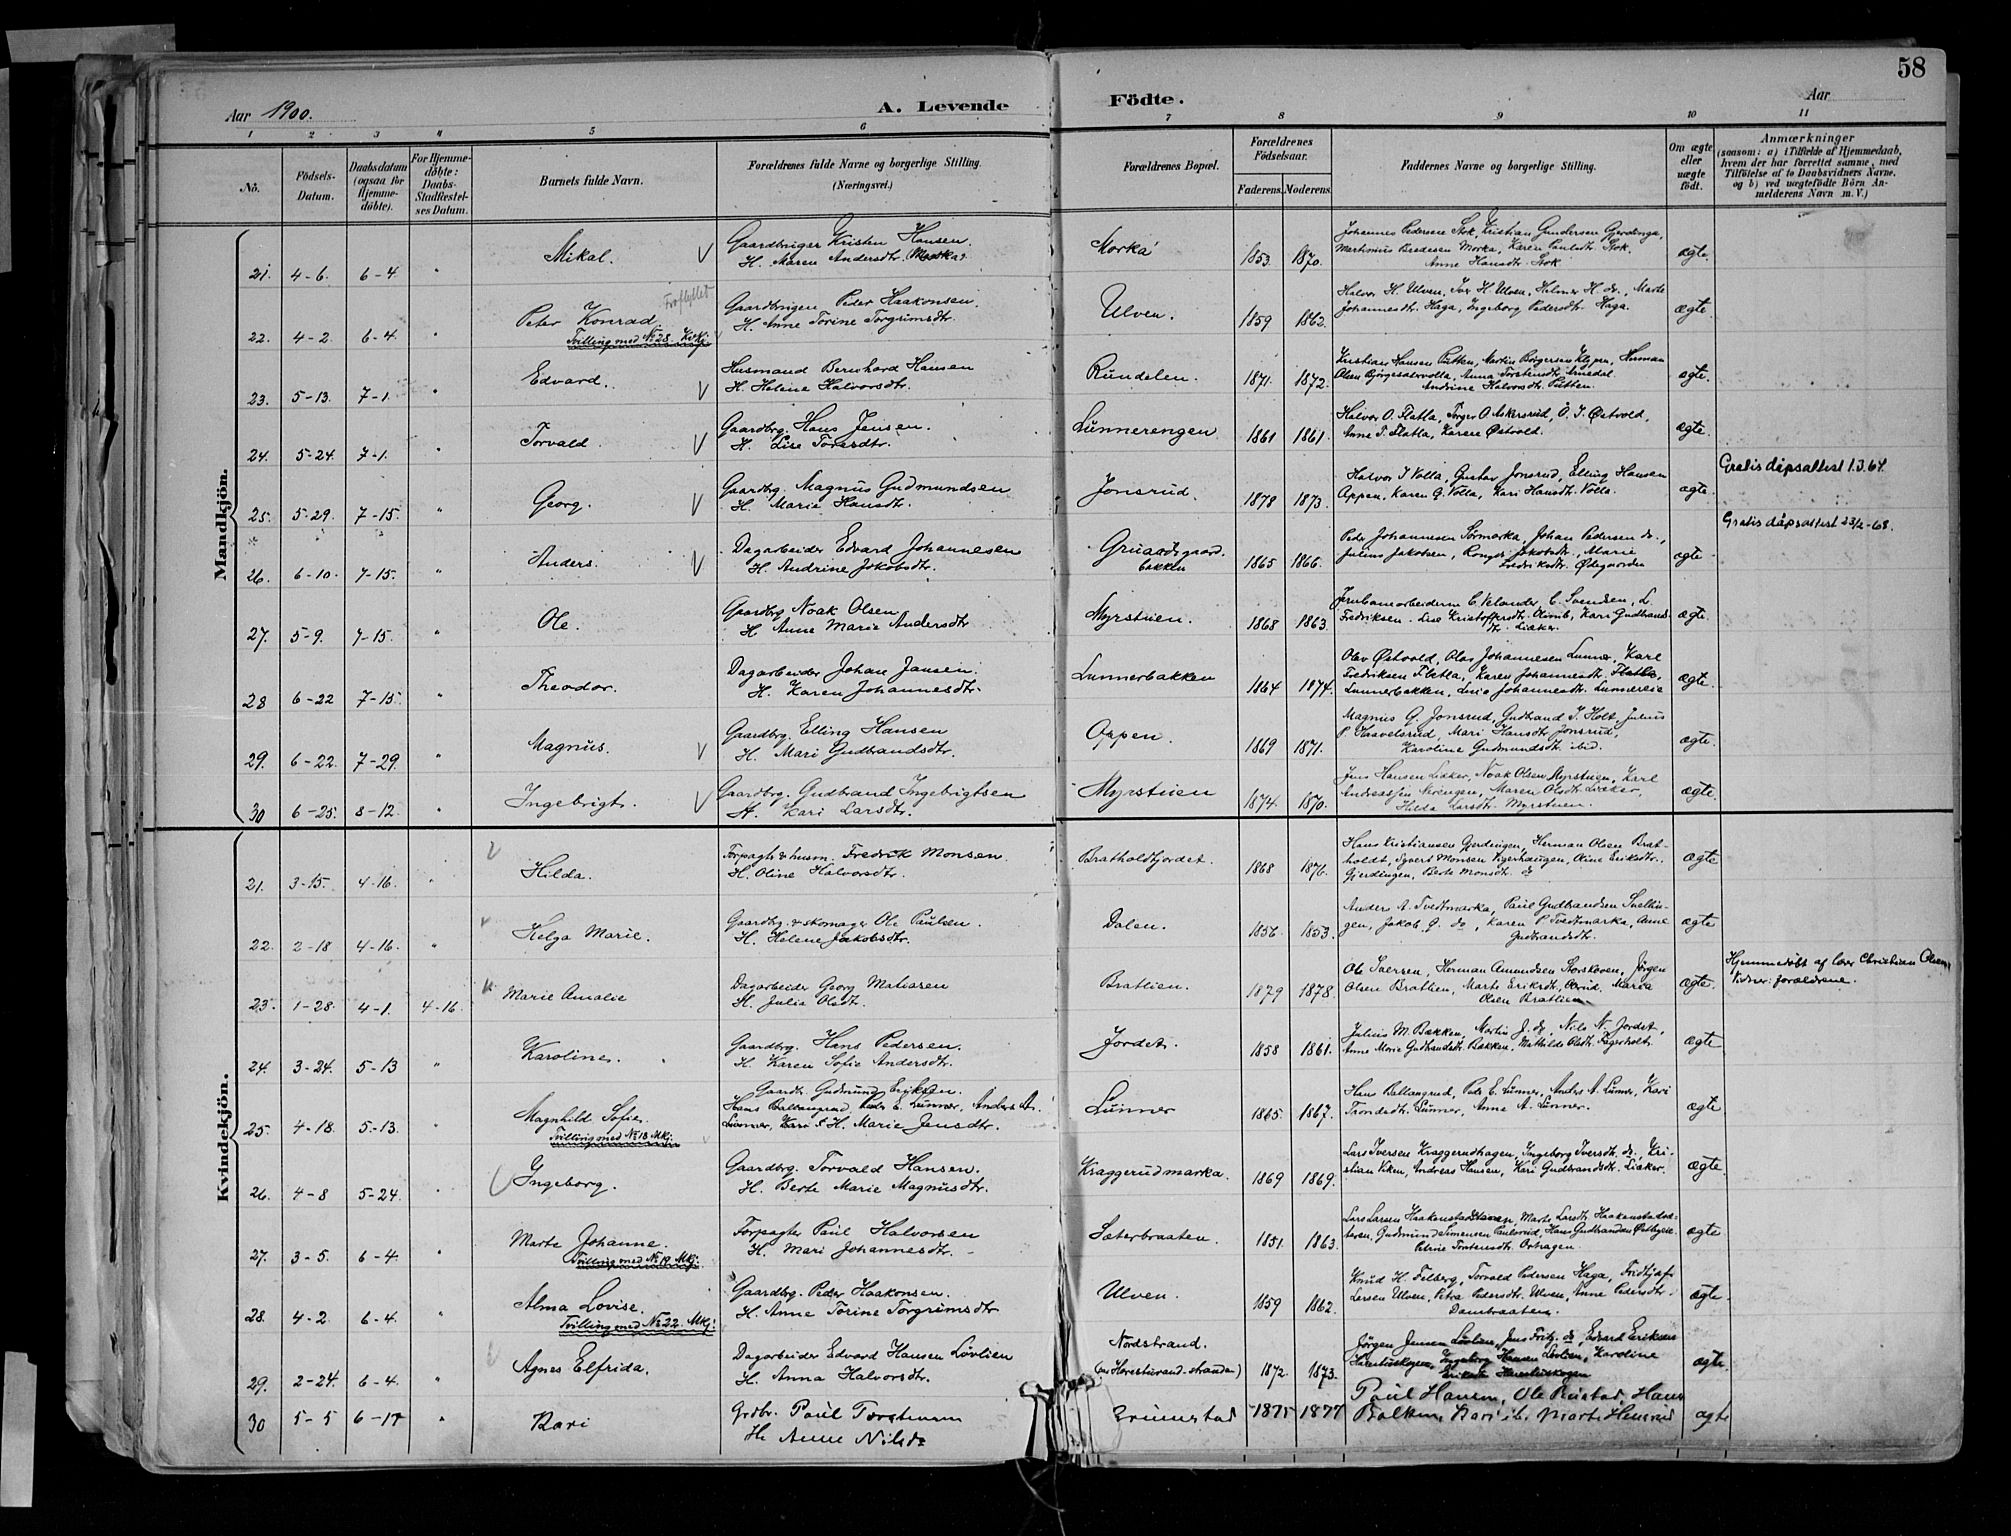 58
Aar 1900.
A. Levende
Födte.
Aar
1 2 3 4 5 6 7 8 9 10 11
No.
Födsels-Datum.
Daabsdatum (ogsaa for Hjemme-döbte).
For Hjemme-döbte: Daabs-Stadfæstel-ses Datum.
Barnets fulde Navn.
Forældrenes fulde Navne og borgerlige Stilling.
(Næringsvei.)
Forældrenes Bopæl.
Forældrenes Födselsaar.
Faderens. Moderens.
Faddernes Navne og borgerlige Stilling.
Om ægte eller uægte födt.
Anmærkninger
(saasom: a) i Tilfælde af Hjemmedaab, hvem der har forrettet samme, med Tilföielse af to Daabsvidners Navne, og b) ved uægtefödte Börn An-melderens Navn m. V.)
Mandkjön.
21. 4-6. 6-4. " Mikal. Gaardbruger Kristen Hansen.
H. Maren Andersdtr. Morka 1853. 1870. ægte.
Johannes Pedersen Stok, Kristian Gundersen Gjerdinga,
Martinius Bredesen Morka, Karen Paulsdtr. Stok.
Anne Hansdtr. Stok.
22. 4-2. 6-4. " Peter Konrad Fraflyttet
Tvilling med No 28. Kvkj.
Gaardbrugen Peder Haakonsen.
H. Anne Torine Torgrimsdtr. Ulven. 1859 1862. ægte.
Halvor H. Ulven, Iver H. Ulven, Helmer H. do., Marte
Johannesdtr. Haga, Ingeborg Pedersdtr. Haga.
23. 5-13. 7-1. " Edvard. Husmand Bernhard Hansen
H. Helene Halvorsdtr. Rundelen. 1871. 1872. ægte.
Kristian Hansen Putten, Martin Börgersen Klypen, Herman
Olsen, Anna Torstensdtr. Arnedal.
Andrine Halvorsdtr. Putten.
24. 5-24. 7-1. " Torvald. Gaardbrg. Hans Jensen.
H. Lise Toresdtr. Lunnerengen 1861 1861. ægte.
Halvor O. Flatla, Torger O. Askersrud, O. J. Østvold,
Anne T. Flatla, Karen Østvold.
25. 5-29. 7-15. " Georg. Gaardbg. Magnus Gudmundsen
H. Marie Hansdtr. Jonsrud. 1878 1873. ægte.
Halvor J Volla, Gustav Jonsrud, Elling Hansen
Oppen, Karen G. Volla, Kari Hansdtr. Volla.
Gratis dåpsattest 1.3.64.
26. 6-10. 7-15. " Anders. Dagarbeider Edvard Johannesen
H. Andrine Jakobsdtr. Gruaadsgaard. bakken 1865 1866. ægte
Peder Johannesen Sörmarka, Johan Pedersen do.,
Julius Jakobsen, Jakobsdtr., Marie
Fredriksdtr. Ødegaarden
Gratis dåpsattest 23/2-68.
27. 5-9. 7-15. " Ole. Gaardbrg Noak Olsen
H. Anne Marie Andersdtr Myrstuen. 1868 1863. ægte.
Jernbanearbeiderne C. Velander, C. Svendsen, L.
Fredriksen. Lise Kristoffersdtr. Olimb, Kari Gudbrands
dtr. Liaker.
28 6-22 7-15. " Theodor. Dagarbeider Johan Jansen.
H. Karen Johannesdtr. Lunnerbakken 1864 1874. ægte.
Olav Østvold, Olav Johannesen Lunner, Karl
Fredriksen Flatla, Karen Johannesdtr. Flatla,
Lunnerbakken, Lina Johannesdtr. Lunnereie
29. 6-22. 7-29. " Magnus. Gaardbrg. Elling Hansen
H. Mari Gudbrandsdtr. Oppen. 1869 1871. ægte.
Magnus G. Jonsrud, Gudbrand J. Holt, Julius
P. Haavelsrud, Mari Hansdtr. Jonsrud,
Karoline Gudmundsdtr. ibid.
30 6-25. 8-12. " Ingebrigt. Gaardbrg. Gudbrand Ingebrigtsen
H. Kari Larsdtr. Myrstuen 1874. 1870. ægte.
Jens Hansen Liaker, Noak Olsen Myrstuen, Karl
Andreassen Næringen, Maren Olsdtr. Liaker,
Hilda Larsdtr. Myrstuen.
Kvindekjön.
21. 3-15. 4-16. " Hilda. Forpagter & husm. Fredrik Monsen.
H. Oline Halvorsdtr. Bratholdtjordet. 1868 1876. ægte
Hans Kristiansen Gjerdingen, Herman Olsen Brat-
holdt, Syvert Monsen Tigerhaugen, Oline Eriksdtr.
Gjerdingen, Berte Monsdtr. do
22. 2-18 4-16. " Helga Marie. Gaardbg. & skomager Ole Paulsen.
H. Helene Jakobsdtr. Dalen. 1856. 1853. ægte
Anders A. Tvedtmarka, Paul Gudbrandsen Snellin-
gen, Jakob G. do, Karen P. Tvedtmarka, Anne
Gudbrandsdtr.
23. 1-28. 4-1 4-16. Marie Amalie Dagarbeider Georg Maliasen
H. Julia Olsdtr. Bratlien. 1879 1878. ægte.
Ole Iversen, Herman Amundsen Storskoven, Jörgen
Olsen Bratlien, Marte Eriksdtr. Marie
Olsen Bratlien
Hjemmedöbt af lærer Christian Olsen,
Vidner: forældrene.
24. 3-24. 5-13 " Karoline. Gaardbrg. Hans Pedersen.
H. Karen Sofie Andersdtr. Jordet. 1858 1861. ægte
Julius M. Bakken, Martin J. do, Nils N. Jordet,
Anne Marie Gudbrandsdtr. Bakken, Mathilde Olsdtr. Fagerholt.
25. 4-18. 5-13. " Magnhild Sofie.
Tvilling med No 18 Mkj.
Gaardb. Gudmund Eriksen.
Hans Ballangrud, Peder E. Lunner, Anders A.
Lunner, Kari H. Marie Jensdtr. Lunner 1865. 1867. ægte
Hans Ballangrud, Peder E. Lunner, Anders A. Lunner, Kari
Trondsdtr. Lunner, Anne A. Lunner.
26. 4-8 5-24. " Ingeborg. Gaardbrg. Torvald Hansen.
H. Berte Marie Magnusdtr. Kraggerudmarka. 1869 1869. ægte
Lars Iversen Kraggerudhagen, Ingeborg Iversdtr. do, Kri-
stian Viken, Andreas Hansen, Kari Gudbrandsdtr. Liaker.
27. 3-5. 6-4. " Marte Johanne.
Tvilling med No 19 Mkj.
Forpagter Paul Halvorsen
H. Mari Johannesdtr. Sæterbraaten. 1851. 1863. ægte
Lars Larsen Haakenstadstuen, Marte Larsdtr. Haakenstadsæ-
teren, Gudmund Simensen Paulsrud, Hans Gudbrandsen Østbyeie
Petrine Torstensdtr. Orhagen.
28. 4-2. 6-4. " Alma Lovise.
Tvilling med No 22 Mkj.
Gaardbg. Peder Haakonsen.
H. Anne Torine Torgrimsdtr. Ulven. 1859 1862. ægte.
Knud H. Felberg, Torvald Pedersen Haga, Fridtjof
Larsen Ulven, Petra Pedersdtr. Ulven, Anne Pedersdtr.
Dambraaten.
29. 2-24. 6-4. " Agnes Elfrida. Dagarbeider Edvard Hansen Lövlien
H. Anna Halvorsdtr. Nordstrand.
(nu Harestuvand-stranden) 1872. 1873. ægte.
Jörgen Jensen Lövlien, Jens Fritz. do, Edvard Eriksen
Harestuskogen, Ingeborg Hansen Lövlien, Karoline
Eriksen Harestuskogen
30 5-5 6-17 " Kari Grdbr. Paul Torstensen
H. Anne Nilsdr Grimstad 1875 1877 ægte
Paul Hansen, Ole Rustad, Hans
Balken, Kari ib. Marte Hensrud